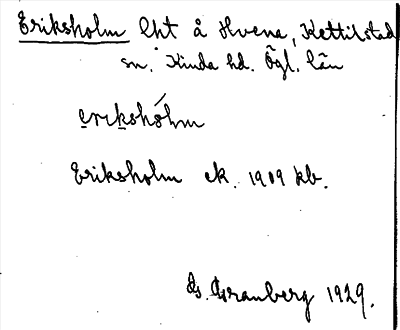 Eriksholm lht å Hvena, Kettilstad
sn. Kinda hd. Ögl. län
erikshólm
Eriksholm ek. 1909 kb.
G. Granberg 1929.